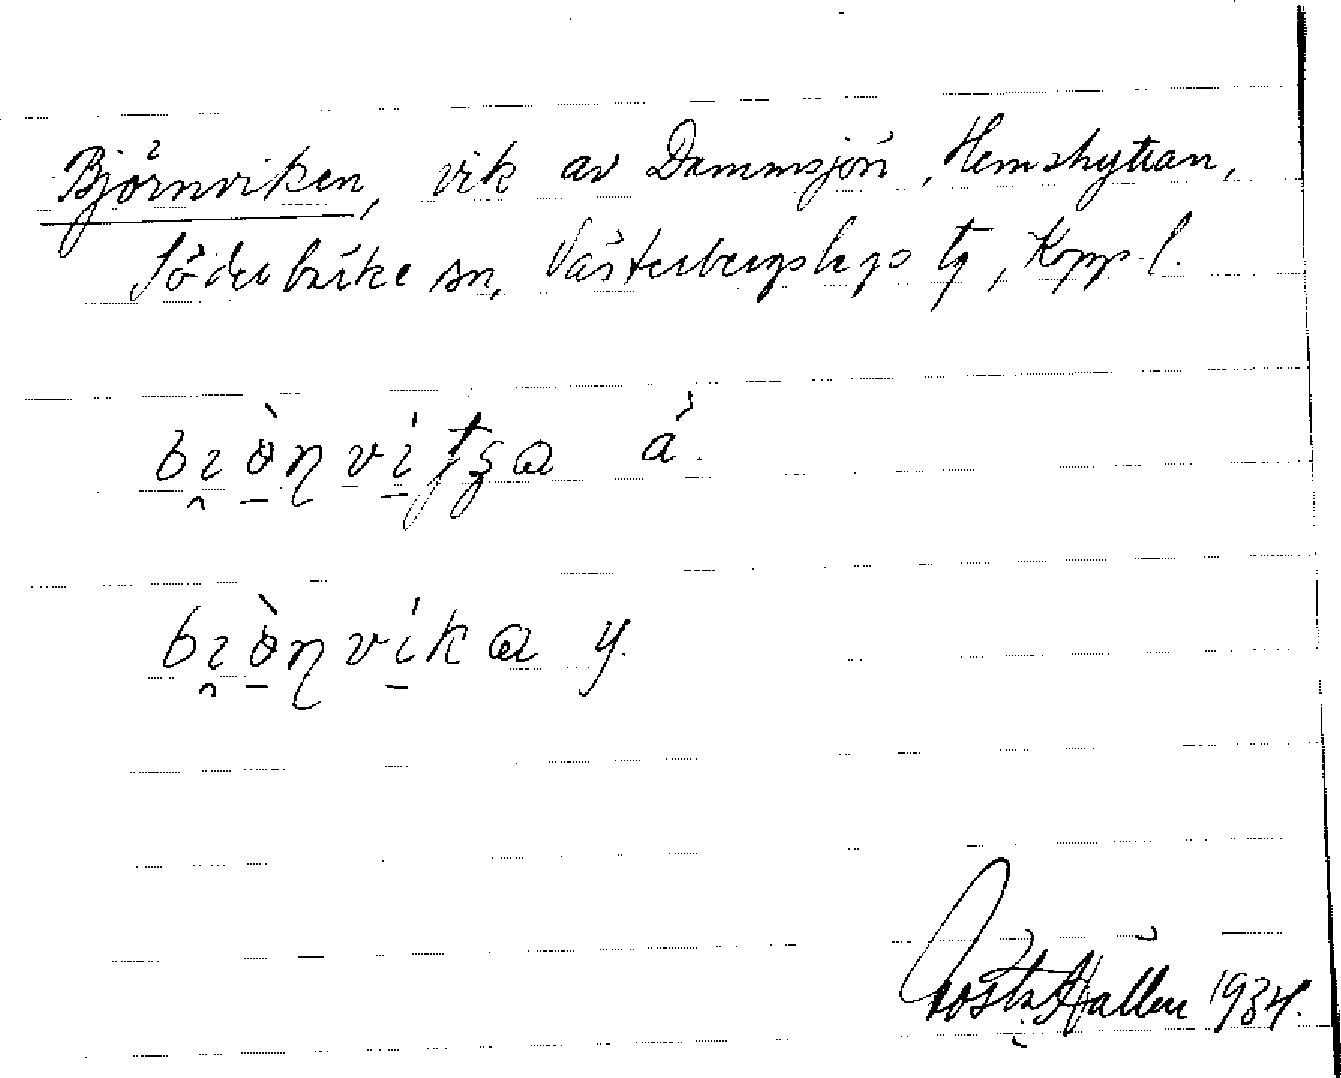 Björnviken, vik av Dammsjön, Hemshyttan,
Söderbärke sn, Västerbergslags tg, Kopp. l.
ä.
y.
Gösta Hallen 1934.